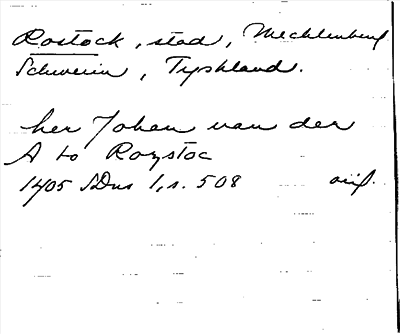 Rostock, stad, Mecklenburg
Schwerin, Tyskland.
her Johan van der
A to Roystoc
1405 SDns 1, s. 508 orig.